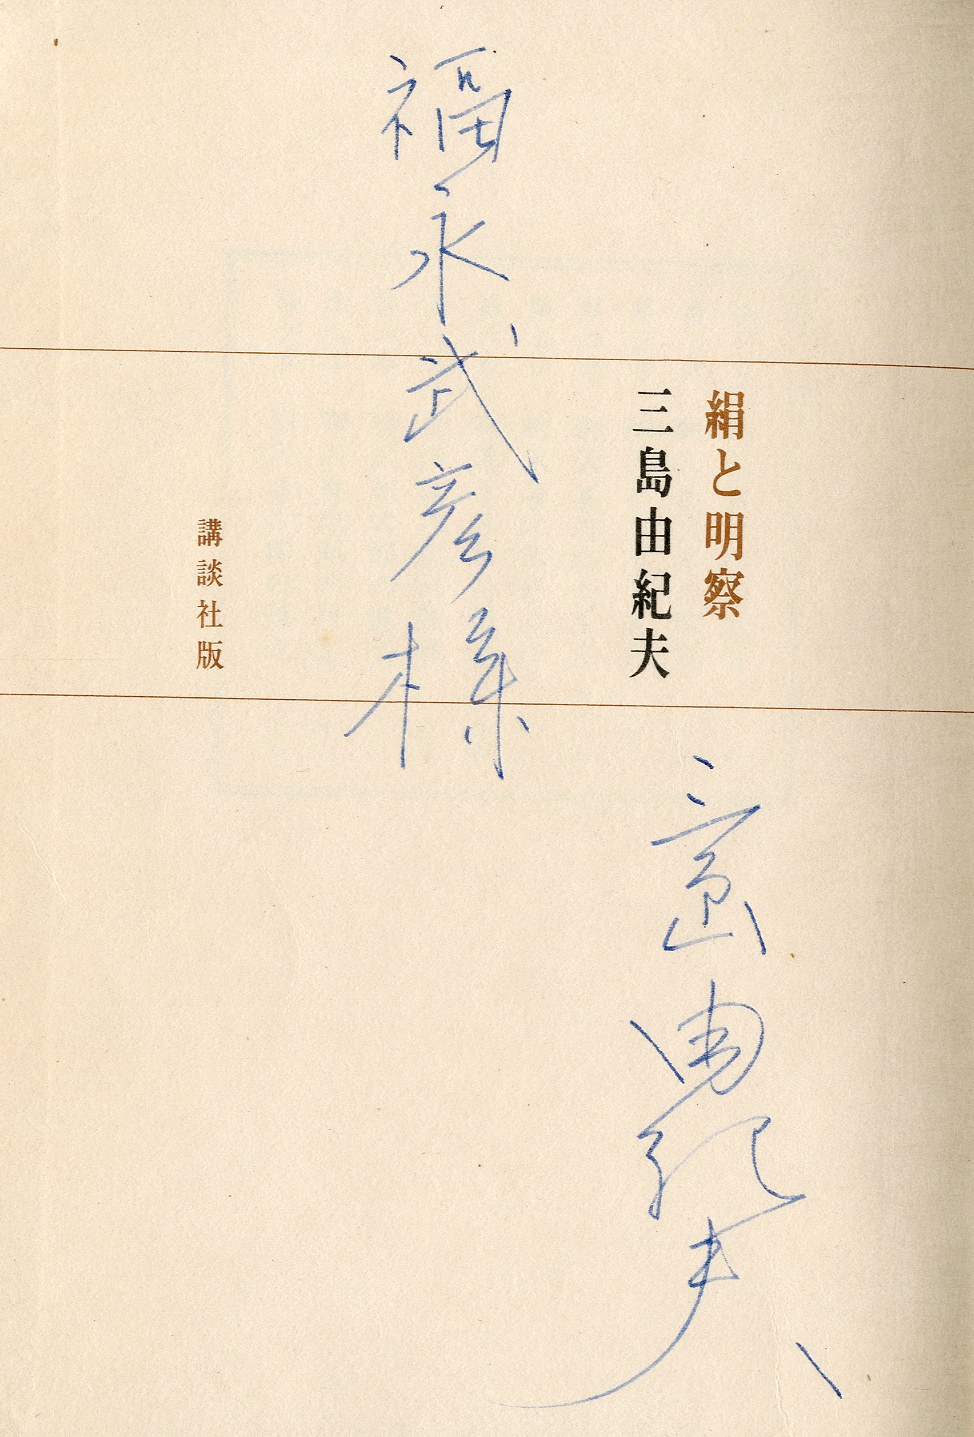 絹と明察
三島由紀夫
福永武彦様
講談社版
三島由紀夫